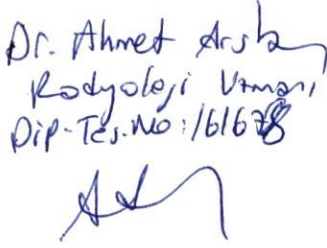 Dr. Ahmet Arslan
Radyoloji Uzmanı
Dip.Tes.No:161678